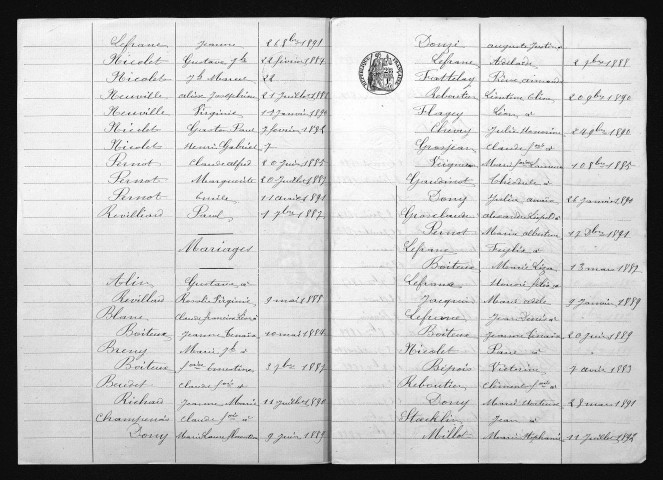 Lefranc Jeanne 26 8bre 1891
Nicolet Gustave Jh 22 février 1884
Nicolet Jh Marcel 22
Neuville Alix Joséphine 21 juillet 1888
Neuville Virginie 1 janvier 1890
Nicolet Gaston Paul 7 février 1892
Nicolet Henri Gabriel 7
Pernot Claude Alfred 20 juin 1885
Pernot Marguerite 20 juillet 1887
Pernot Emile 11 avril 1891
Revilliard Paul 1 9bre 1882
Mariages
Alin Gustave &
Revillard Rosalie Virginie 9 mai 1888
Blanc Claude François
Boiteux Jeanne 10 mai 1884
Breny Marie Jh &
Boiteux 3 9bre 1887
Boudot Claude &
Richard Jeanne Marie 11 juillet 1890
Champenois Claude &
Dony Marie Laure 9 juin 1889
Donzé Auguste Justin &
Lefranc Adelaïde 2 9bre 1888
Pierre Aimable
Reboutier Léontine 20 9bre 1890
Flagey Léon &
Chevry Julie 24 9bre 1890
Grosjean Claude &
Marie 10 8bre 1885
Gaudinot Théodule &
Dony Julie 26 janvier 1890
Groselaude Alexandre Léopold &
Pernot Maria Albertine 17 Xbre 1891
Lefranc &
Boiteux Marie 13 mai 1887
Lefranc Honoré Félix &
Jacquin Marie Adèle 9 janvier 1889
Lefranc Jean Denis &
Boiteux Jeanne 20 juin 1889
Nicolet Paul &
Victorine 7 avril 1883
Reboutier Clément &
Dony Marie 28 mars 1891
Stoecklin Jean &
Millot Marie Stéphanie 11 juillet 1892